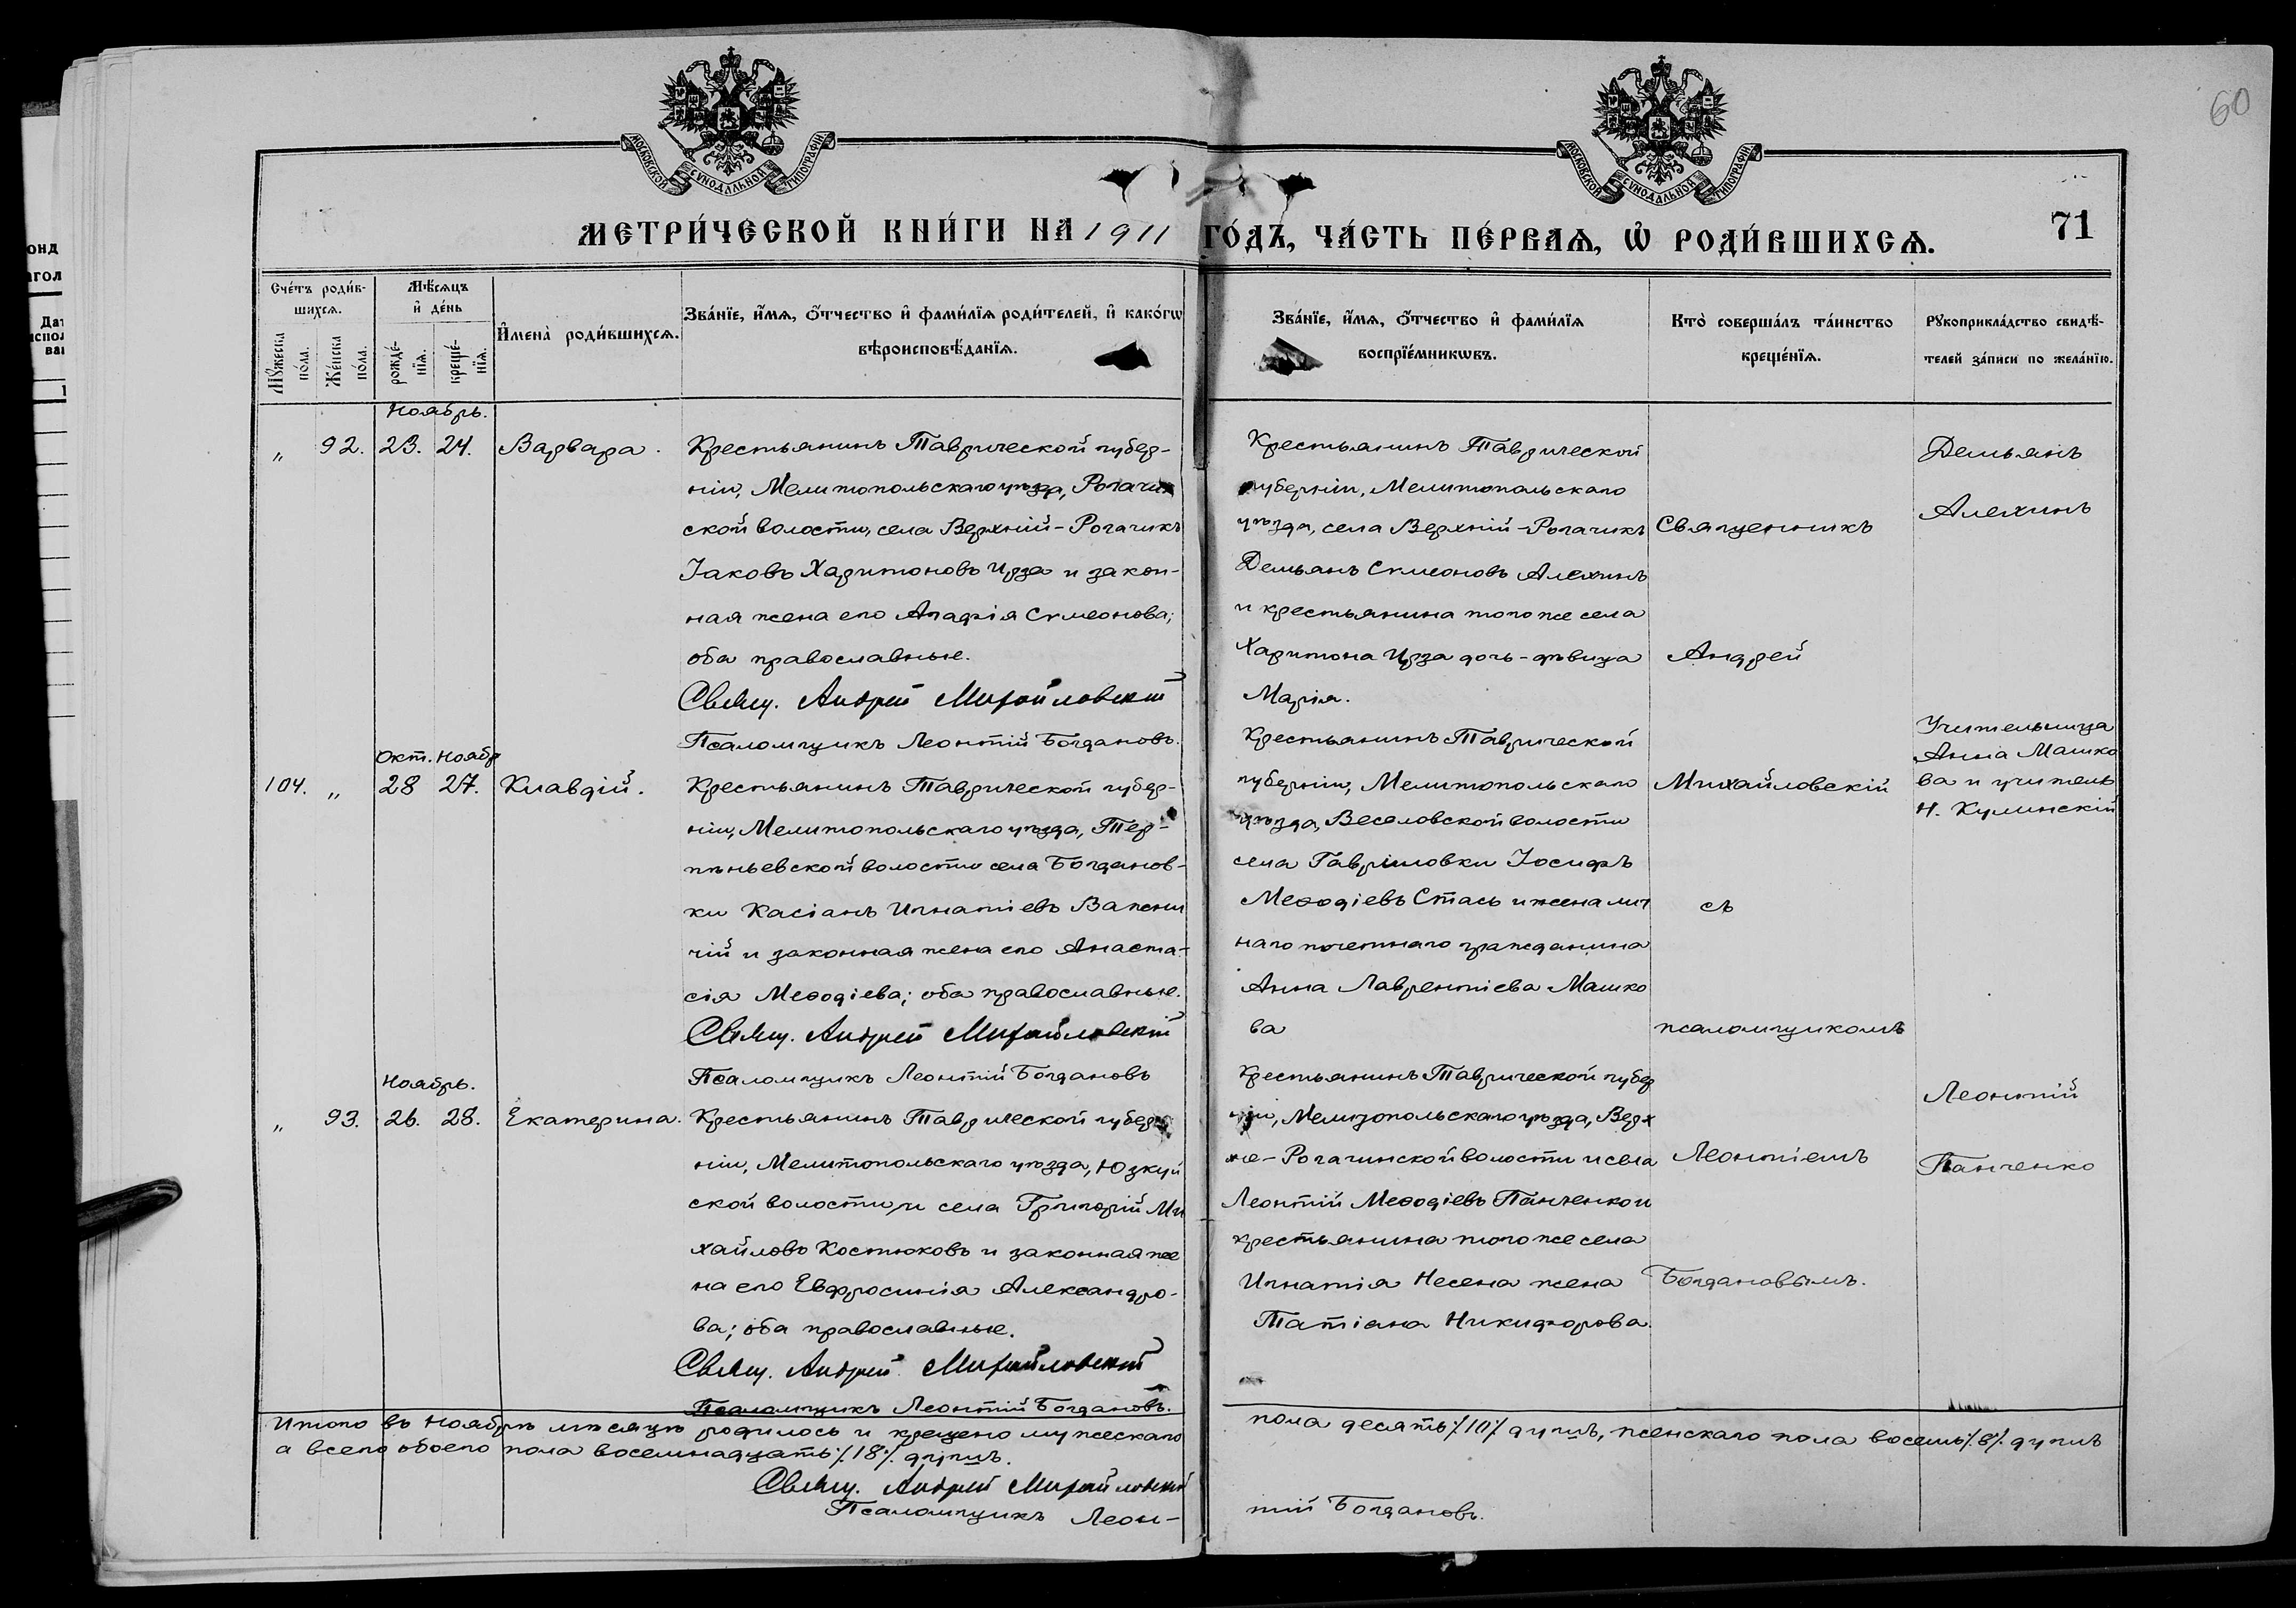 60
МОСКОВСКОЙ СУНОДАЛЬНОЙ ТИПОГРАФІИ
МОСКОВСКОЙ СУНОДАЛЬНОЙ ТИПОГРАФІИ
МЕТРИ́ЧЕСКОЙ КНИ́ГИ НА 1911 ГО́ДЪ, ЧА́СТЬ ПЕ́РВАѦ, Ѡ РОДИ́ВШИХСѦ.
71
Сче́тъ роди́в-
шихсѧ.
Мꙋжеска по́ла.
Же́нска по́ла.
Мѣ́сѧцъ
и҆ де́нь
рожде́-
нїѧ.
креще́-
нїѧ.
И҆мена̀ роди́вшихсѧ.
Зва́нїе, и҆́мѧ, ѻ҆́тчество и҆ фами́лїѧ роди́телей, и҆ како́гѡ
вѣроисповѣ́данїѧ.
Зва́нїе, и҆́мѧ, ѻ҆́тчество и҆ фами́лїѧ
воспрїе́мникѡвъ.
Кто̀ соверша́лъ та́инство
креще́нїѧ.
Рꙋкоприкла́дство свидѣ́-
телей за́писи по жела́нїю.
Ноябрь.
„ 92. 23. 24. Варвара.
Крестьянинъ Таврической губер-
ніи, Мелитопольскаго уѣзда, Рогачик
ской волости, села Верхній-Рогачикъ
Іаковъ Харитоновъ Ирза и закон-
ная жена его Агафія Сѵмеонова;
оба православные.
Свящ. Андрей Михайловскій
Псаломщикъ Леонтій Богдановъ.
Крестьянинъ Таврической
губерніи, Мелитопольскаго
уѣзда, села Верхній-Рогачикъ
Демьянъ Сѵмеоновъ Алехинъ
и крестьянина того же села
Харитона Ирза дочь-дѣвица
Марія.
Священникъ
Андрей
Михайловскій
съ
псаломщикомъ
Леонтіемъ
Богдановымъ.
Демьянъ
Алехинъ
Окт. Ноябр
104. „ 28 27. Клавдій.
Крестьянинъ Таврической губер-
ніи, Мелитопольскаго уѣзда, Тер-
пѣньевской волости села Богданов-
ки Касіанъ Игнатіевъ Вапни
чій и законная жена его Анаста-
сія Меѳодіева; оба православные.
Свящ. Андрей Михайловскій
Псаломщикъ Леонтій Богдановъ
Крестьянинъ Таврической
губерніи, Мелитопольскаго
уѣзда, Веселовской волости
села Гавриловки Іосифъ
Меѳодіевъ Стась и жена лич
наго почетнаго гражданина
Анна Лаврентіева Машко
ва
Учительница
Анна Машко
ва и учитель
Н. Кулинскій
Ноябрь.
„ 93. 26. 28. Екатерина.
Крестьянинъ Таврической губер
ніи, Мелитопольскаго уѣзда, Юзкуй
ской волости и села Григорій Ми
хайловъ Костюковъ и законная же
на его Евфросинія Александро-
ва; оба православные.
Свящ. Андрей Михайловскій
Псаломщикъ Леонтій Богдановъ.
Крестьянинъ Таврической губер
ніи, Мелитопольскаго уѣзда, Верх
не-Рогачинской волости и села
Леонтій Меѳодіевъ Панченко и
крестьянина того же села
Игнатія Несена жена
Татіана Никифорова.
Леонтій
Панченко
Итого въ Ноябрѣ мѣсяцѣ родилось и крещено мужескаго пола десять ⁒10⁒ душъ, женскаго пола восемь ⁒8⁒ душъ
а всего обоего пола восемнадцать ⁒18⁒ душъ.
Свящ. Андрей Михайловскій
Псаломщикъ Леон-
тій Богдановъ.